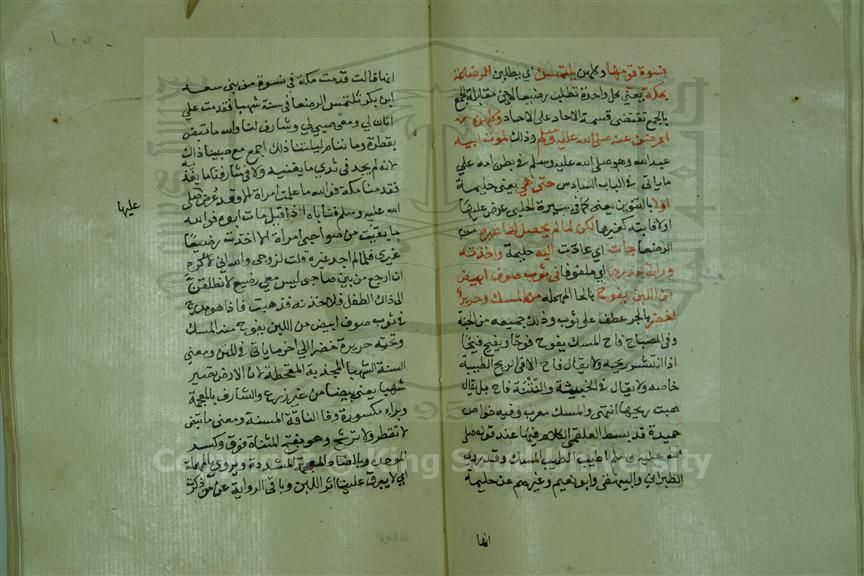 بنسوة قومها وكلهن يلتمسن اي يطلبن الرضاعة
بمكة يعني كل واحدة تطلب رضيعا لان مقابلة الجمع
بالجمع تقتضي قسمة الاحاد على الاحاد وكلهن
اعرضن عنه صلى الله عليه وسلم وذلك لموت ابيه
عبد الله وهو صلى الله عليه وسلم في بطن امه على
ما ياتي في الباب السادس حتى هي يعني حليمة
اولا بالتنوين يعني كما في سيرة الحلبي عرض عليها
اولا فابته كغيرها لكن لما لم يحصل لها غيره من
الرضعا جات اي عادت اليه حليمة واخذته
وراته مدرجا اي ملفوفا في ثوب صوف ابيض
من اللبن يفوح بالحا المهملة منه المسك وحريرة
اخضر بالجر عطف على ثوب وذلك جميعه من الجنة
وفي المصباح فاح المسك يفوح فوحا ويفيح فيحا
اذا انتشر ريحه ولا يقال فاح الا في الريح الطيبة
خاصة ولا يقال في الخبيثة والمنتنة فاح بل يقال
هبت ريحها انتهى والمسك معرب وفيه خواص
حميدة قد بسط العلقمي الكلام فيها عند قوله صلى
الله عليه وسلم اطيب الطيب المسك وقد روى
الطبراني والبيهقي وابو نعيم وغيرهم عن حليمة
انها
انها قالت قدمت مكة في نسوة من بني سعد
ابن بكر نلتمس الرضعا في سنة شهبا فقدمت على
اتان لي ومعي صبي لي وشارف لنا والله ما تبض
بقطرة وما ننام ليلتنا ذلك اجمع مع صبينا ذاك
لانه لم يجد في ثدي ما يغنيه ولا في شارفنا ما يغذيه
فقدمنا مكة فوالله ما علمت امراة الا وقد عرض صلى
عليها
الله عليه وسلم فتاباه اذا قيل مات ابوه فوالله
ما بقيت من صواحبي امراة الا اخذت رضيعا
غيري فلما لم اجد غيره قلت لزوجي والله اني لاكره
ان ارجع من بين صواحبي ليس معي رضيع لانطلقن
الى ذلك الطفل فلاخذنه فذهبت فاذا هو مدرج
في ثوب صوف ابيض من اللبن يفوح منه المسك
وتحته حريرة خضرا الى اخر ما ياتي في المتن ومعنى
السنة الشهبا المجدبة المقحطة لان الارض تصير
شهبا يعني بيضا من غير زرع والشارف بالمعجمة
وبراء مكسورة وفا الناقة المسنة ومعنى ما تبض
لا تقطر ولا ترشح وهو بفتح المثناة فوق وكسر
الموحدة وبالضاد المعجمة المشددة ويروى بالمهملة
اي لا يبرق عليها اثر اللبن وباقي الرواية عن من ذكر
Copyright © King Saud University